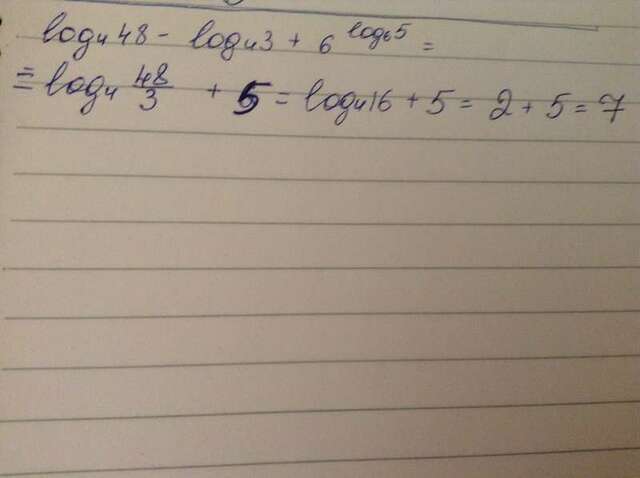 log₄48 - log₄3 + 6^log₆5 =
= log₄ 48/3 + 5 = log₄16 + 5 = 2 + 5 = 7